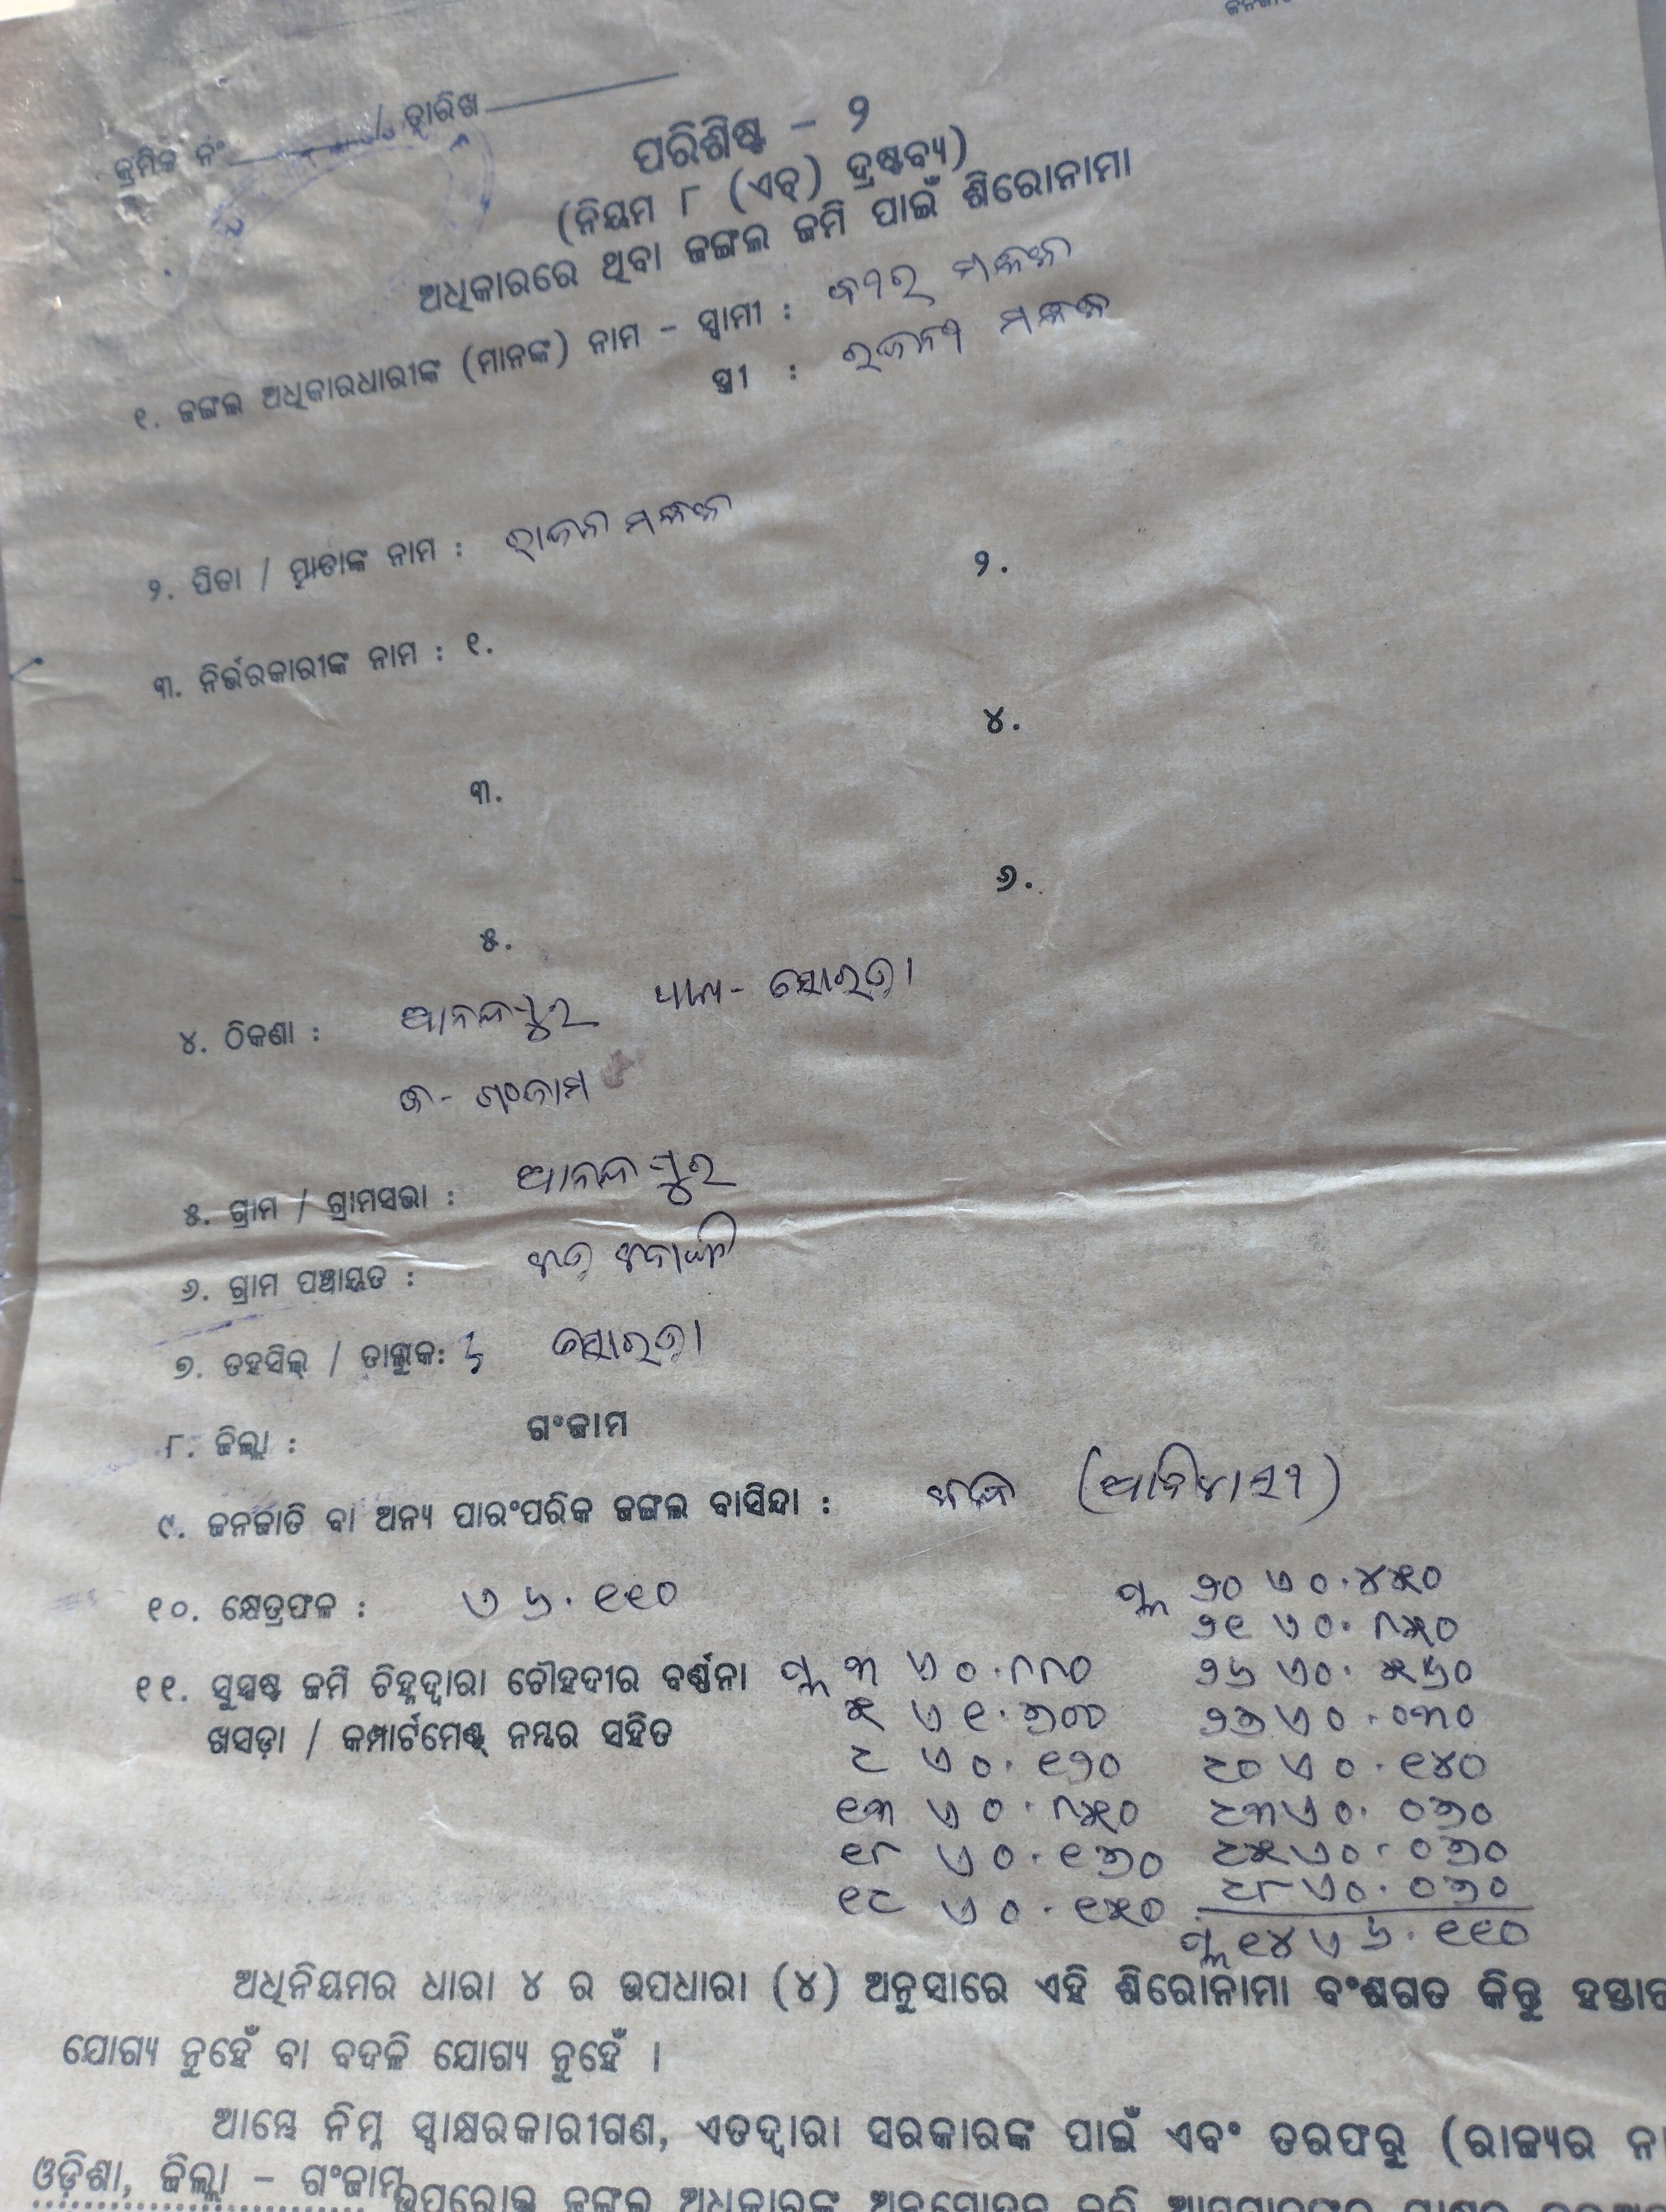 କ୍ରମିକ ନଂ / ତାରିଖ
ପରିଶିଷ୍ଟ – ୨
(ନିୟମ ୮ (ଏଚ୍) ଦ୍ରଷ୍ଟବ୍ୟ)
ଅଧିକାରରେ ଥିବା ଜଙ୍ଗଲ ଜମି ପାଇଁ ଶିରୋନାମା
୧. ଜଙ୍ଗଲ ଅଧିକାରଧାରୀଙ୍କ (ମାନଙ୍କ) ନାମ – ସ୍ୱାମୀ : ମଲ୍ଲିକ
ସ୍ତ୍ରୀ : ମଲ୍ଲିକ
୨. ପିତା / ମାତାଙ୍କ ନାମ : ମଲ୍ଲିକ
୩. ନିର୍ଭରକାରୀଙ୍କ ନାମ : ୧. ୨.
୩. ୪.
୫. ୬.
୪. ଠିକଣା : ଆନନ୍ଦପୁର ଥାନା- ସୋରଡ଼ା
ଜି- ଗଂଜାମ
୫. ଗ୍ରାମ / ଗ୍ରାମସଭା : ଆନନ୍ଦପୁର
୬. ଗ୍ରାମ ପଞ୍ଚାୟତ :
୭. ତହସିଲ୍ / ତାଲୁକ: ସୋରଡ଼ା
୮. ଜିଲ୍ଲା : ଗଂଜାମ
୯. ଜନଜାତି ବା ଅନ୍ୟ ପାରଂପରିକ ଜଙ୍ଗଲ ବାସିନ୍ଦା : କନ୍ଧ (ଆଦିବାସୀ)
୧୦. କ୍ଷେତ୍ରଫଳ : ଏ ୬.୧୧୦
୧୧. ସୁସ୍ପଷ୍ଟ ଜମି ଚିହ୍ନଦ୍ୱାରା ଚୌହଦୀର ବର୍ଣ୍ଣନା
ଖସଡ଼ା / କମ୍ପାର୍ଟମେଣ୍ଟ୍ ନମ୍ବର ସହିତ
ପ୍ଲ ୩ ଏ ୦.୮୮୦
୫ ଏ ୧.୭୦୦
୯ ଏ ୦.୧୨୦
୧୩ ଏ ୦.୮୫୦
୧୮ ଏ ୦.୧୭୦
୧୯ ଏ ୦.୧୫୦
ପ୍ଲ ୨୦ ଏ ୦.୪୫୦
୨୧ ଏ ୦.୮୫୦
୨୬ ଏ ୦.୫୬୦
୨୭ ଏ ୦.୦୩୦
୯୦ ଏ ୦.୧୪୦
୯୩ ଏ ୦.୦୭୦
୯୫ ଏ ୦.୦୭୦
୯୮ ଏ ୦.୦୭୦
ପ୍ଲ ୧୪ ଏ ୬.୧୧୦
ଅଧିନିୟମର ଧାରା ୪ ର ଉପଧାରା (୪) ଅନୁସାରେ ଏହି ଶିରୋନାମା ବଂଶଗତ କିନ୍ତୁ
ଯୋଗ୍ୟ ନୁହେଁ ବା ବଦଳି ଯୋଗ୍ୟ ନୁହେଁ ।
ଆମ୍ଭେ ନିମ୍ନ ସ୍ୱାକ୍ଷରକାରୀଗଣ, ଏତଦ୍ୱାରା ସରକାରଙ୍କ ପାଇଁ ଏବଂ ତରଫରୁ (ରାଜ୍ୟର
ଓଡ଼ିଶା, ଜିଲ୍ଲା – ଗଂଜାମ ଉପରୋକ୍ତ ଜଙ୍ଗଲ